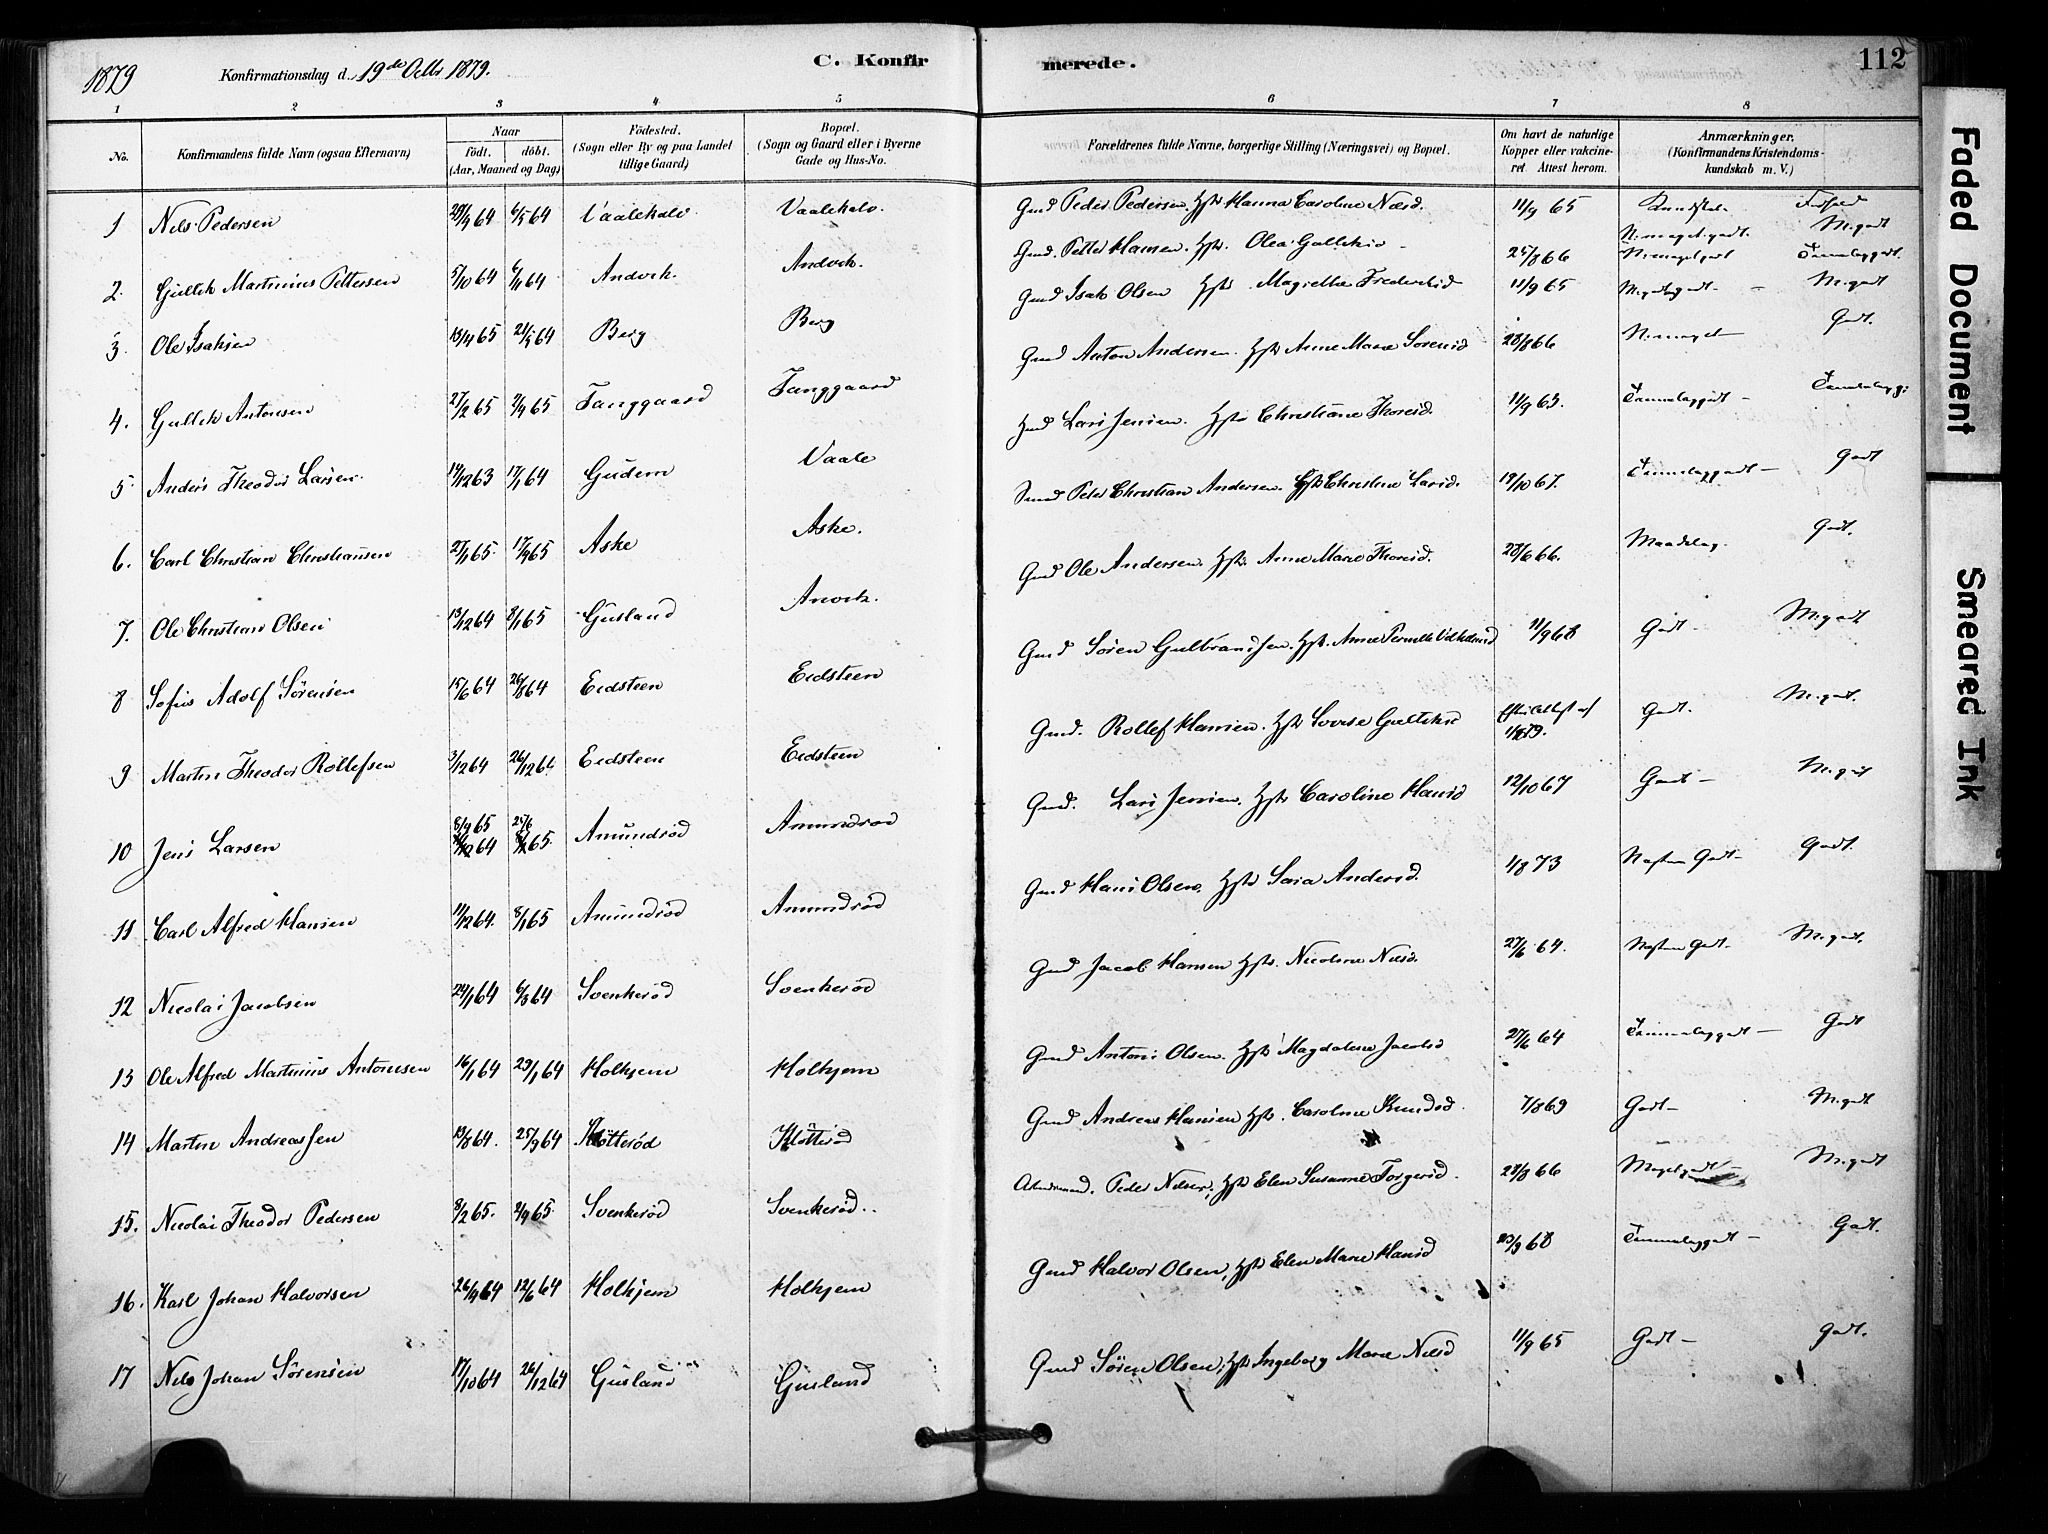 1879
Konfirmationsdag d. 19de Octbr 1879.
C. Konfirmerede.
112
1 2 3 4 5 6 7 8
No.
Konfirmandens fulde Navn (ogsaa Efternavn)
Naar
födt. döbt.
(Aar, Maaned og Dag)
Födested.
(Sogn eller By og paa Landet
tillige Gaard)
Bopæl.
(Sogn og Gaard eller i Byerne
Gade og Hus-No.
Forældrenes fulde Navne, borgerlige Stilling (Næringsvei) og Bopæl.
Om havt de naturlige
Kopper eller vakcine-
ret Attest herom.
Anmærkninger.
(Konfirmandens Kristendoms-
kundskab m. V.)
1 Nils Pedersen 6/5 64 Vaalekalv. Vaalekalv. Gmd Peder Pedersen, Hst Hanna Caroline Nilsd. 11/9 65 M.godt
2. Gullik Martinius Pettersen 5/10 64 6/11 64 Andvik. Andvik. Gmd. Petter Hansen. Hst. Olea Golliksd 25/8 66
3. Ole Isaksen 21/5 64 Berg Berg Gmd Isak Olsen Hst. Magrethe Frederiksd 11/9 65 M.godt
4. Gullik Antonsen 27/2 65 2/9 65 Fanggaard Fanggaard Gmd Anton Andersen. Hst Anne Marie Sörensd 28/8 66 N. meget Godt.
5 Anders Theodor Larsen 14/12 63 17/1 64 Gudem Vaale Lars Jensen. Hst Christiane Thoresd. Temmeleggodt
6. Carl Christian Christiansen 27/1 65. 17/9 65 Aske Aske. Smd Peter Christian Andersen. Hst Christine Larsd. 19/10 67. Temmeleggodt Godt
7. Ole Christian Olsen 13/12 64 8/1 65 Gusland Anvik. Gmd Ole Andersen. Hst. Anne Marie Thoresd. 28/6 66. Maadelig. Godt.
8 Sofus Adolf Sörensen 15/6 64 26/8 64 Eidsteen Eidsteen Gmd Sören Gulbrandsen. Hst. Anne Pernille 11/9 68 Godt M.godt
9 Martin Theodor Rollefsen 3/12 64 26/12 64 Eidsteen Eidsteen Gmd. Rollef Hansen. Hst Lovise Gulliksd Godt. M.godt.
10 Jens Larsen 8/9 65 Amundröd Amundröd Gmd. Lars Jensen. Hst Caroline Hansd 12/10 67 Godt M.godt
11 Carl Alfred Hansen 11/12 64. 8/1 65 Amundröd Amundröd Gmd Hans Olsen. Hst Sara Andersd. 1/8 73 Næsten Godt Godt.
12 Nicolai Jacobsen 24/1 64 6/3 64 Svenkeröd Svenkeröd Gmd Jacob Hansen Hst. Nicoline Nilsd. 27/6 64. Næsten Godt. M.godt.
13 Ole Alfred Martinius Antonisen 16/1 64 29/1 64 Holkjem Holkjem Gmd Antoni Olsen. Hst Magdalene Jacobsd 27/6 64 Temmeleggodt Godt
14 Martin Andreassen 13/8 64. 25/9 64 Klötteröd Klötteröd Gmd Andreas Hansen Hst. Caroline Knudsd. 7/8 69 Godt M.godt
15. Nicolai Theodor Pedersen 8/2 65. 2/9 65. Svenkeröd Svenkeröd. Peder Nilsen, Hst Elen Susanne Torgersd. 28/8 66 Megetgodt M.godt
16. Karl Johan Halvorsen 26/4 64 12/6 64 Holkjem Holkjem Gmd Halvor Olsen, Hst Elen Marie Hansd 68 Temmeleggodt Godt.
17 Nils Johan Sörensen 17/10 64 26/12 64 Gusland Gusland Gmd Sören Olsen, Hst Ingeborg Marie Nilsd 11/9 65 Godt Godt.
Faded Document
Smeared Ink